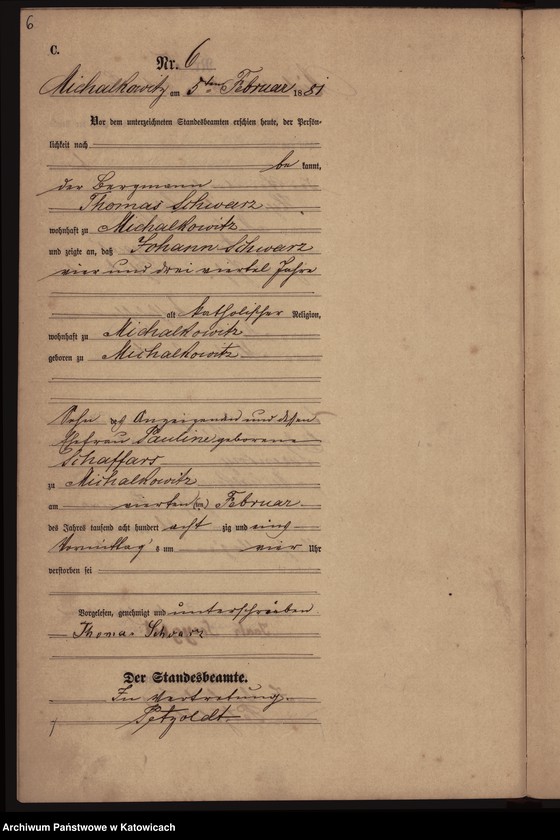 6
C.
Nr. 6
Michalkowitz am 5ten Februar 1881
Vor dem unterzeichneten Standesbeamten erschien heute, der Persön-
lichkeit nach
be kannt,
der Bergmann
Thomas Schwarz
wohnhaft zu Michalkowitz
und zeigte an, daß Johann Schwarz
vier und drei viertel Jahre
alt katholischer Religion,
wohnhaft zu Michalkowitz
geboren zu Michalkowitz
Sohn des Anzeigenden und dessen
Ehefrau Pauline geborene
Schaffars
zu Michalkowitz
am vierten ten Februar
des Jahres tausend acht hundert acht zig und eins
Vormittag s um vier Uhr
verstorben sei
Vorgelesen, genehmigt und unterschrieben
Thomas Schwarz
Der Standesbeamte.
In Vertretung
Petzoldt
Archiwum Państwowe w Katowicach